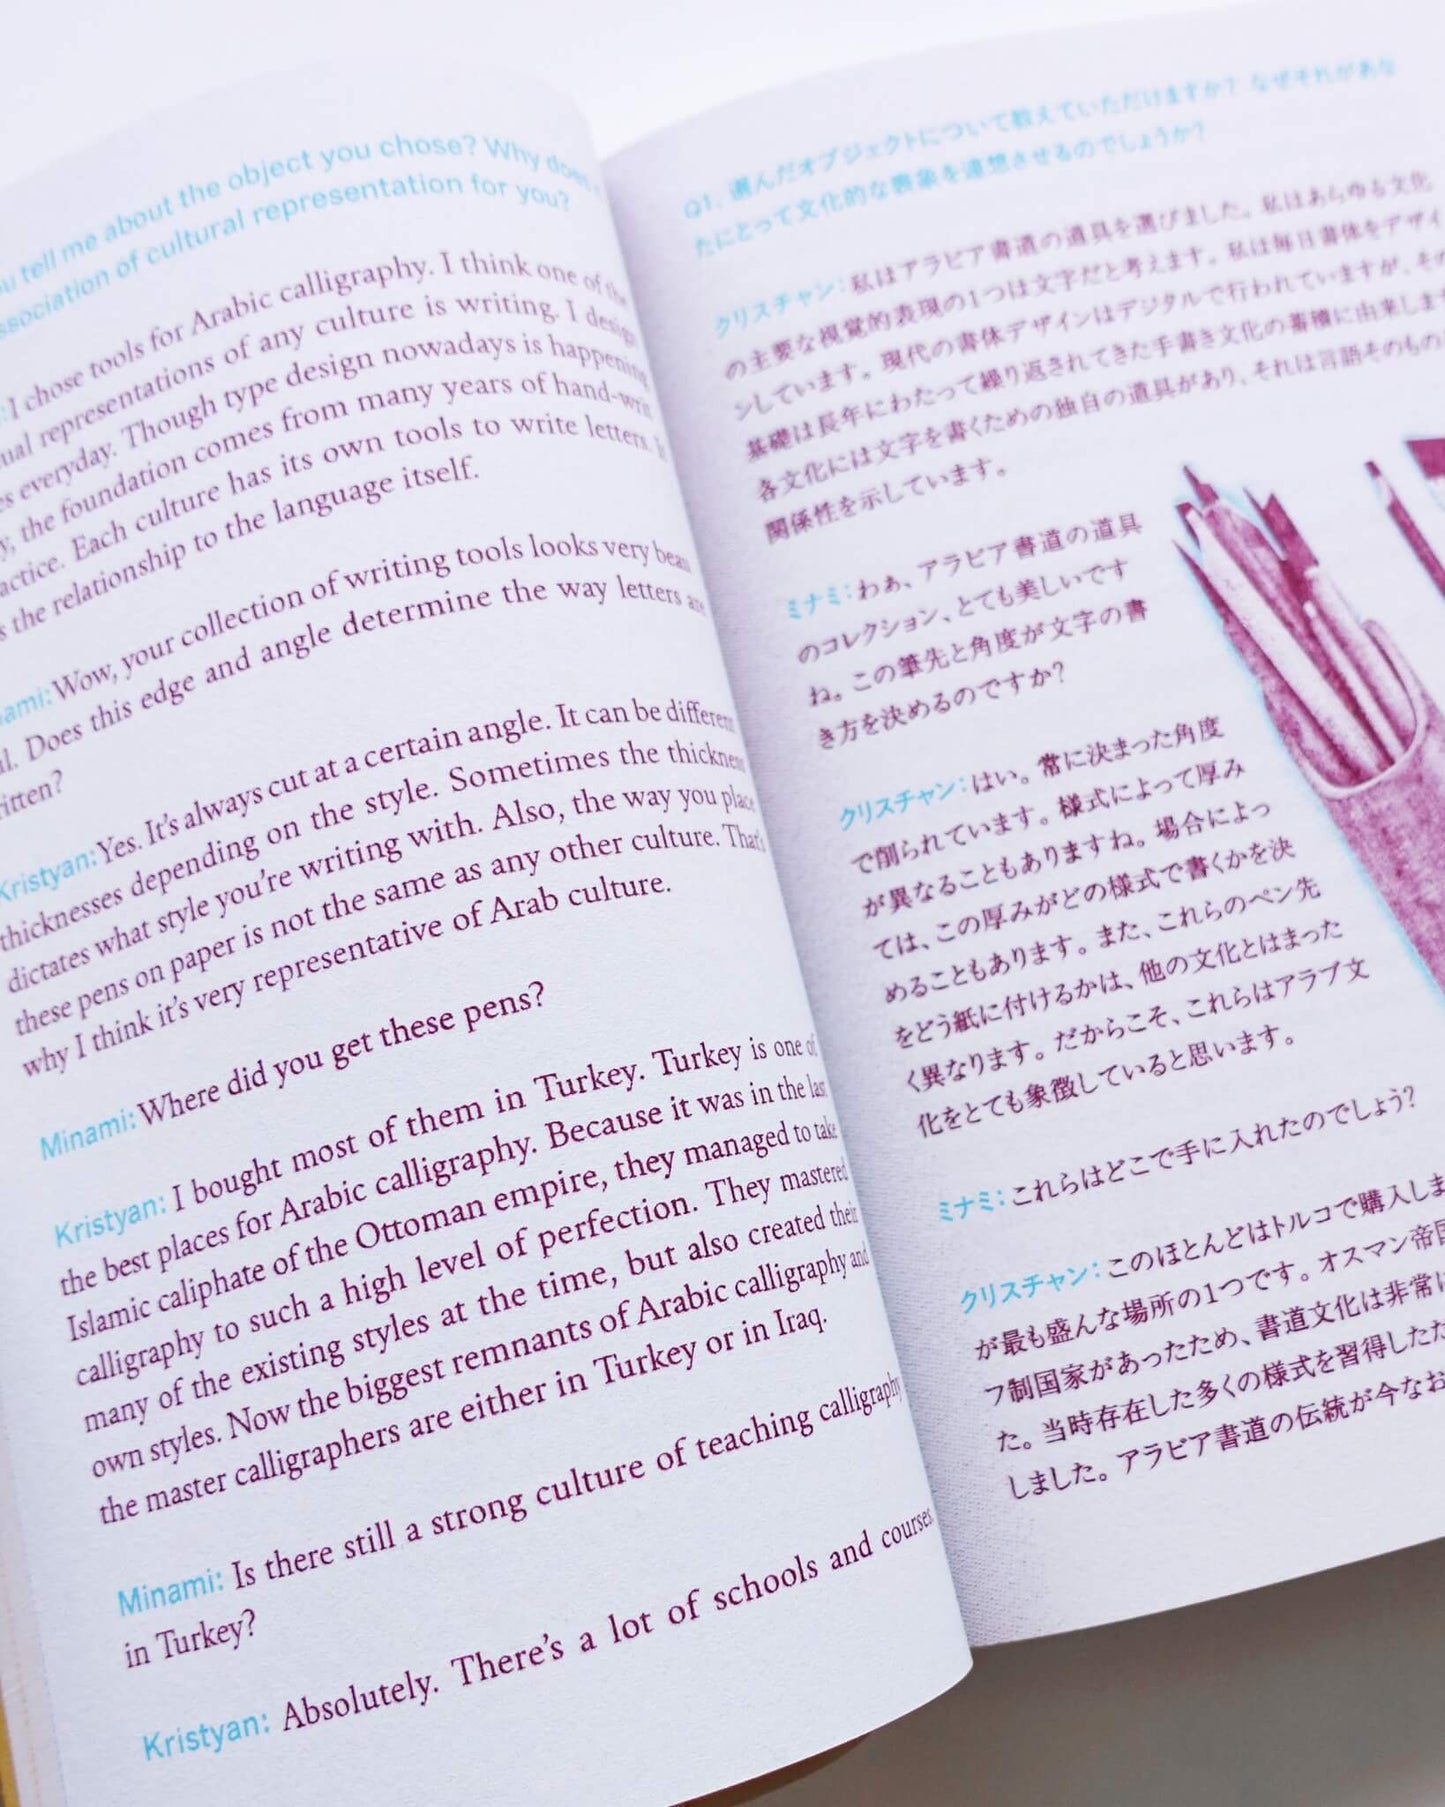 tell me about the object you chose? Why does
association of cultural representation for you?
I chose tools for Arabic calligraphy. I think one of the
representations of any culture is writing. I design
everyday. Though type design nowadays is happening
the foundation comes from many years of hand-writ
practice. Each culture has its own tools to write letters. It
the relationship to the language itself.
Wow, your collection of writing tools looks very beau
Does this edge and angle determine the way letters are
written?
Kristyan: Yes. It's always cut at a certain angle. It can be different
thicknesses depending on the style. Sometimes the thickness
dictates what style you're writing with. Also, the way you place
these pens on paper is not the same as any other culture. That's
why I think it's very representative of Arab culture.
Minami: Where did you get these pens?
Kristyan: I bought most of them in Turkey. Turkey is one of
the best places for Arabic calligraphy. Because it was in the last
Islamic caliphate of the Ottoman empire, they managed to take
calligraphy to such a high level of perfection. They mastered
many of the existing styles at the time, but also created their
own styles. Now the biggest remnants of Arabic calligraphy and
the master calligraphers are either in Turkey or in Iraq.
Minami: Is there still a strong culture of teaching calligraphy
in Turkey?
Kristyan: Absolutely. There's a lot of schools and courses.
Q1. 選んだオブジェクトについて教えていただけますか？ なぜそれがあな
たにとって文化的な表象を連想させるのでしょうか？
クリスチャン：私はアラビア書道の道具を選びました。私はあらゆる文化
の主要な視覚的表現の1つは文字だと考えます。私は毎日書体をデザイ
ンしています。現代の書体デザインはデジタルで行われていますが、その
基礎は長年にわたって繰り返されてきた手書き文化の蓄積に由来しま
各文化には文字を書くための独自の道具があり、それは言語そのもの
関係性を示しています。
ミナミ：わぁ、アラビア書道の道具
のコレクション、とても美しいです
ね。この筆先と角度が文字の書
き方を決めるのですか？
クリスチャン：はい。常に決まった角度
で削られています。様式によって厚み
が異なることもありますね。場合によっ
ては、この厚みがどの様式で書くかを決
めることもあります。また、これらのペン先
をどう紙に付けるかは、他の文化とはまった
く異なります。だからこそ、これらはアラブ文
化をとても象徴していると思います。
ミナミ：これらはどこで手に入れたのでしょう？
クリスチャン：このほとんどはトルコで購入しま
が最も盛んな場所の1つです。オスマン帝国
フ制国家があったため、書道文化は非常に
た。当時存在した多くの様式を習得した
しました。アラビア書道の伝統が今なお